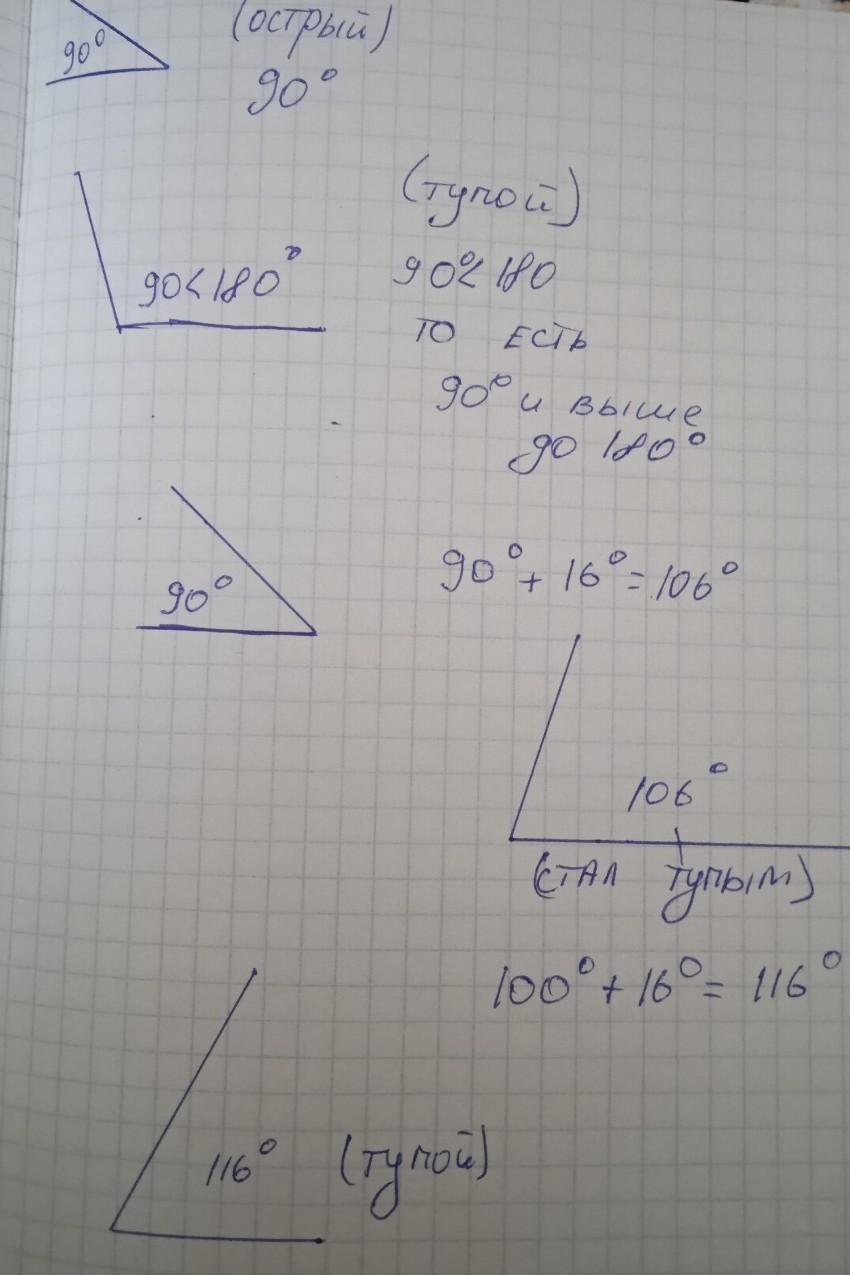 90° (острый)
90°
(тупой)
90<180° 90°<180
то есть
90° и выше
до 180°
90° 90° + 16° = 106°
106°
(стал тупым)
100° + 16° = 116°
116° (тупой)